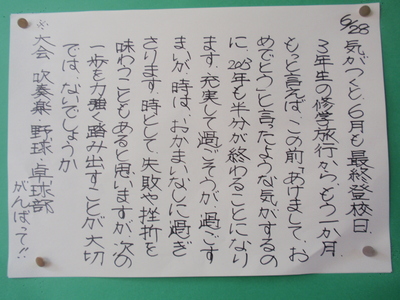 6/28 気がつくと6月も最終登校日
3年生の修学旅行から、もう一か月
もっと言えば、この前「あけまして、お
めでとう」と言ったような気がするの
に、2013も半分が終わることになり
ます。充実して過ごそうが、過ごす
まいが、時は、おかまいなしに過ぎ
さります。時として、失敗や挫折を
味わうこともあると思いますが、次の
一歩を力強く踏み出すことが大切
では、ないでしょうか
※大会 吹奏楽・野球・卓球部
がんばって!!